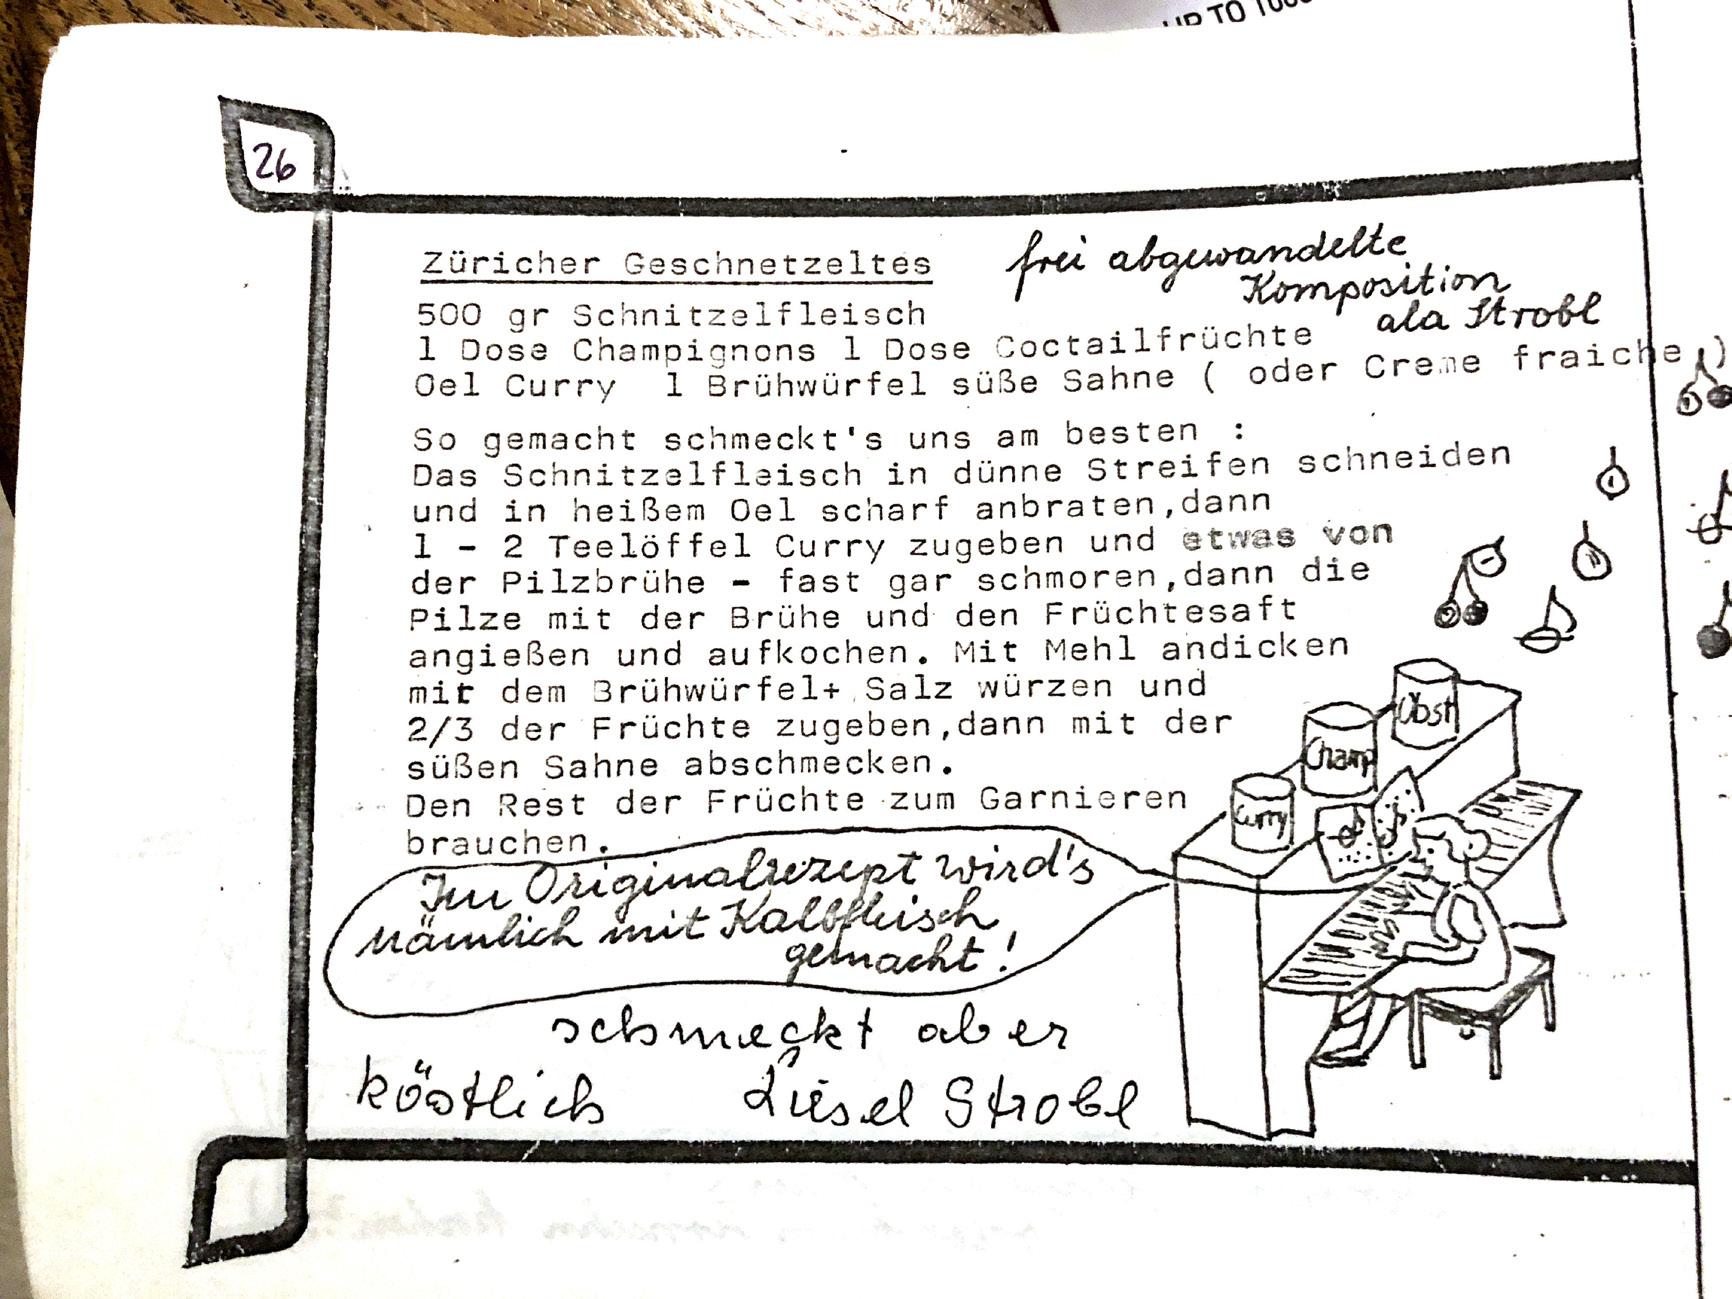 UP TO
26
Züricher Geschnetzeltes
frei abgewandelte
Komposition
ala Strobl
500 gr Schnitzelfleisch
1 Dose Champignons 1 Dose Coctailfrüchte
Oel Curry 1 Brühwürfel süße Sahne ( oder Creme fraiche )
So gemacht schmeckt's uns am besten :
Das Schnitzelfleisch in dünne Streifen schneiden
und in heißem Oel scharf anbraten,dann
1 - 2 Teelöffel Curry zugeben und etwas von
der Pilzbrühe - fast gar schmoren,dann die
Pilze mit der Brühe und den Früchtesaft
angießen und aufkochen. Mit Mehl andicken
mit dem Brühwürfel+ Salz würzen und
2/3 der Früchte zugeben,dann mit der
süßen Sahne abschmecken.
Den Rest der Früchte zum Garnieren
brauchen.
Obst
Champ
Curry
Im Originalrezept wird's
nämlich mit Kalbfleisch
gemacht!
schmeckt aber
köstlich Liesel Strobl